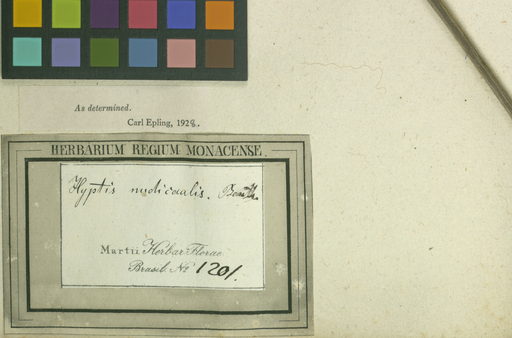 As determined.
Carl Epling, 1928.
HERBARIUM REGIUM MONACENSE.
Hyptis nudicaulis. Benth.
Martii Herbar. Florae
Brasil. No 1201.